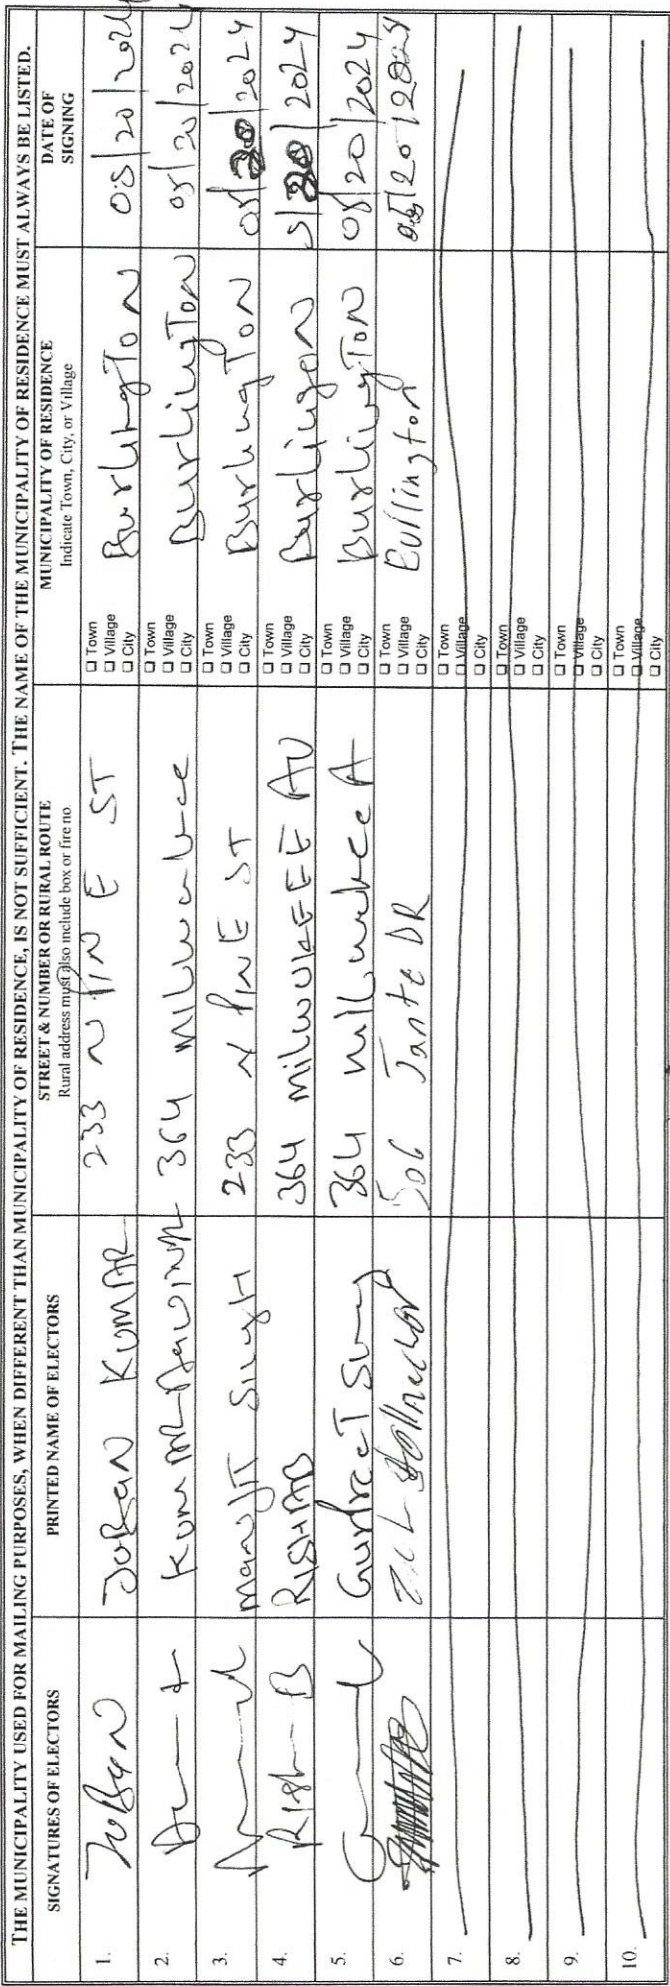 THE MUNICIPALITY USED FOR MAILING PURPOSES, WHEN DIFFERENT THAN MUNICIPALITY OF RESIDENCE, IS NOT SUFFICIENT. THE NAME OF THE MUNICIPALITY OF RESIDENCE MUST ALWAYS BE LISTED.
SIGNATURES OF ELECTORS
PRINTED NAME OF ELECTORS
STREET & NUMBER OR RURAL ROUTE
Rural address must also include box or fire no
MUNICIPALITY OF RESIDENCE
Indicate Town, City, or Village
DATE OF
SIGNING
1. KUMAR 233 N PINE ST
☐ Town
☐ Village
☐ City
Burlington 05/20/2024
2. 364 Milwaukee
☐ Town
☐ Village
☐ City
BurlingTon 05/20/2024
3. ManJIT Singh 233 N PINE ST
☐ Town
☐ Village
☐ City
BurlingTON 05/20/2024
4. RISHAB 364 MILWUKEEE AV
☐ Town
☐ Village
☐ City
Burlingon 5/20/2024
5. GurPreeT 364 Milwukee A
☐ Town
☐ Village
☐ City
BurlingTon 05/20/2024
6. DR
☐ Town
☐ Village
☐ City
Burlington 05/20/2024
7.
☐ Town
☐ Village
☐ City
8.
☐ Town
☐ Village
☐ City
9.
☐ Town
☐ Village
☐ City
10.
☐ Town
☐ Village
☐ City